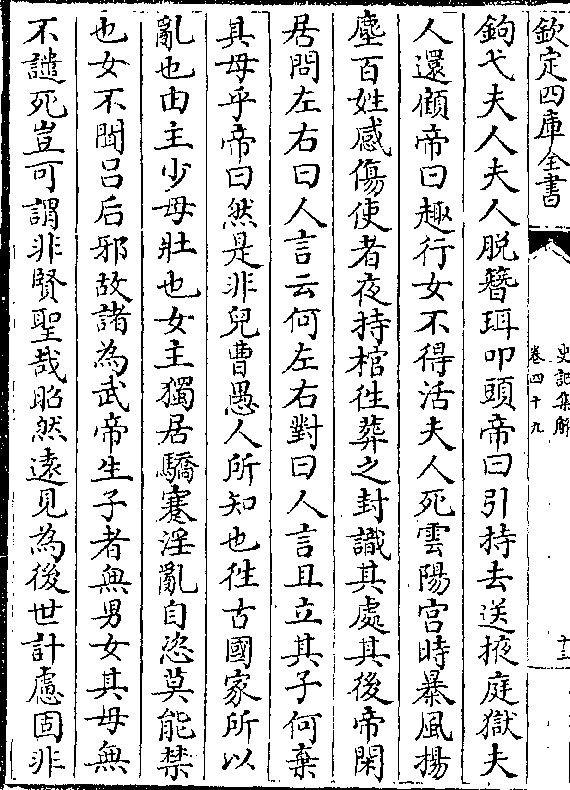 欽定四庫全書
史記集解
卷四十九
十三
鉤弋夫人夫人脱簮珥叩頭帝曰引持去送掖庭獄夫
人還顧帝曰趣行女不得活夫人死雲陽宫時暴風揚
塵百姓感傷使者夜持棺徃葬之封識其處其後帝閑
居問左右曰人言云何左右對曰人言且立其子何棄
其母乎帝曰然是非兒曹愚人所知也徃古國家所以
亂也由主少母壯也女主獨居驕蹇淫亂自恣莫能禁
也女不聞吕后邪故諸為武帝生子者無男女其母無
不譴死豈可謂非賢聖哉昭然逺見為後世計慮固非